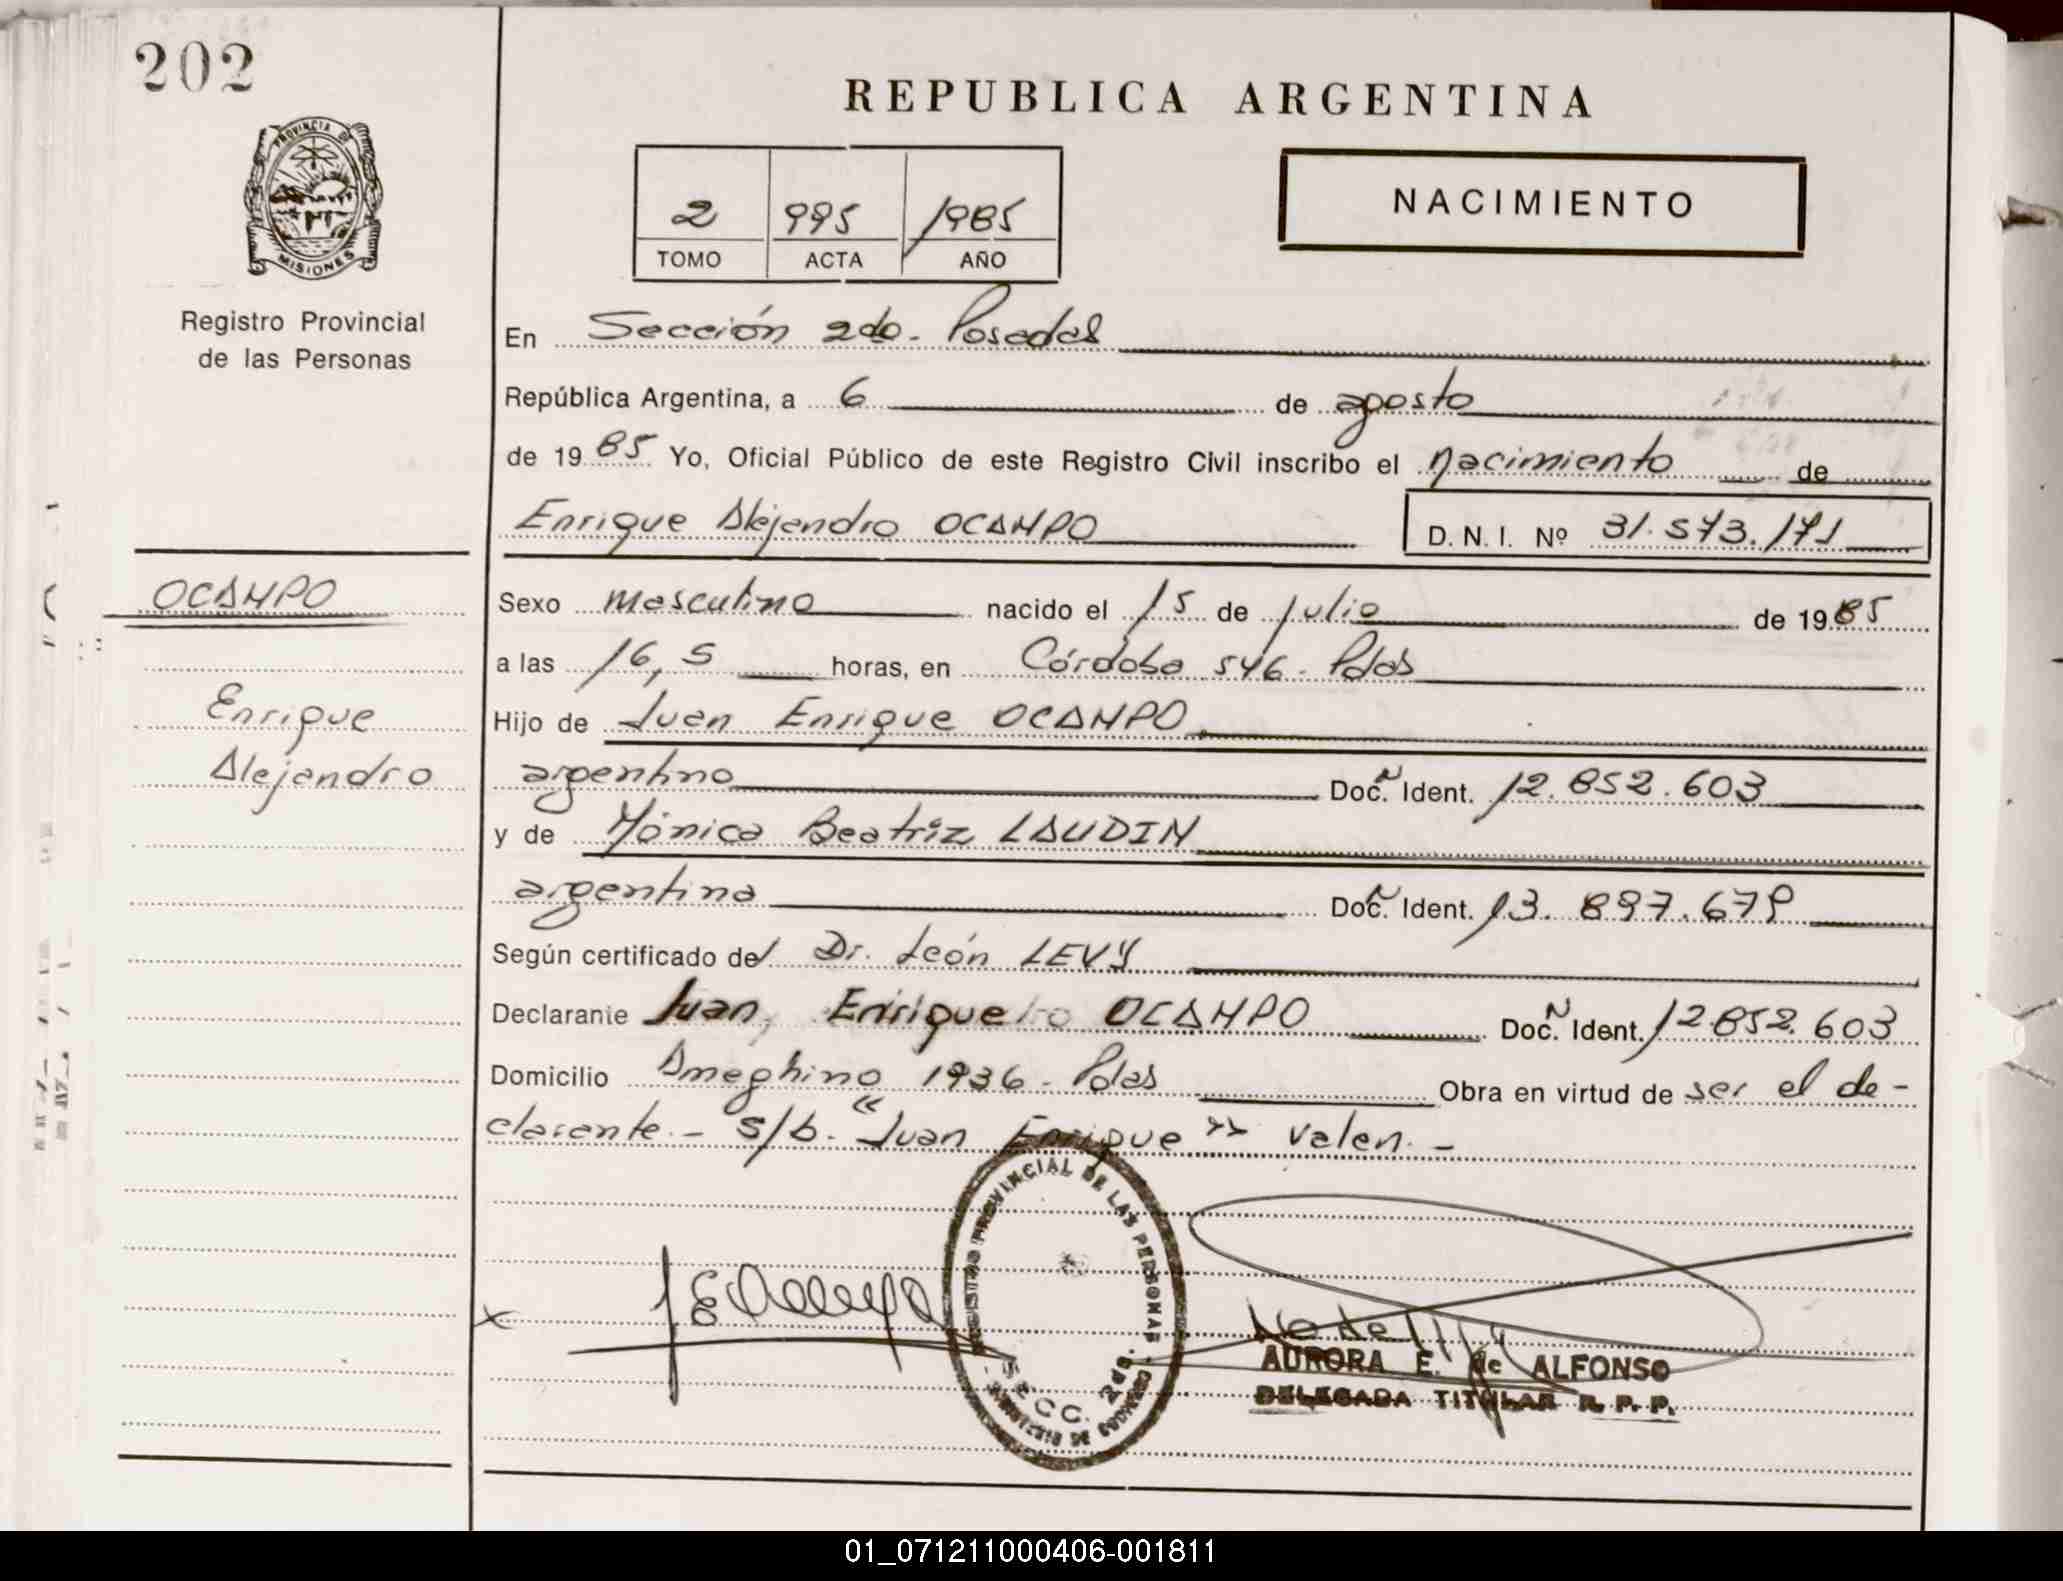 202
REPUBLICA ARGENTINA
PROVINCIA DE MISIONES
2 995 1985
TOMO ACTA AÑO
NACIMIENTO
Registro Provincial
de las Personas
En Sección 2da. Posadas
República Argentina, a 6 de agosto
de 1985 Yo, Oficial Público de este Registro Civil inscribo el nacimiento de
Enrique Alejandro OCAMPO D. N. I. Nº 31.573.171
OCAMPO
Enrique
Alejandro
Sexo masculino nacido el 15 de julio de 1985
a las 16,5 horas, en Córdoba 546 - Pdas
Hijo de Juan Enrique OCAMPO
argentino Doc. Ident. 12.852.603
y de Mónica Beatriz LAUDIN
argentina Doc. Ident. 13.897.679
Según certificado del Dr. León LEVY
Declarante Juan Enrique OCAMPO Doc. Ident. 12.852.603
Domicilio Ameghino 1936 - Pdas Obra en virtud de ser el de-
clarante.- s/b. "Juan Enrique" valen.-
REGISTRO PROVINCIAL DE LAS PERSONAS
SECC. 2da.
MINISTERIO DE GOBIERNO
x
AURORA E. de ALFONSO
DELEGADA TITULAR R. P. P.
01_071211000406-001811